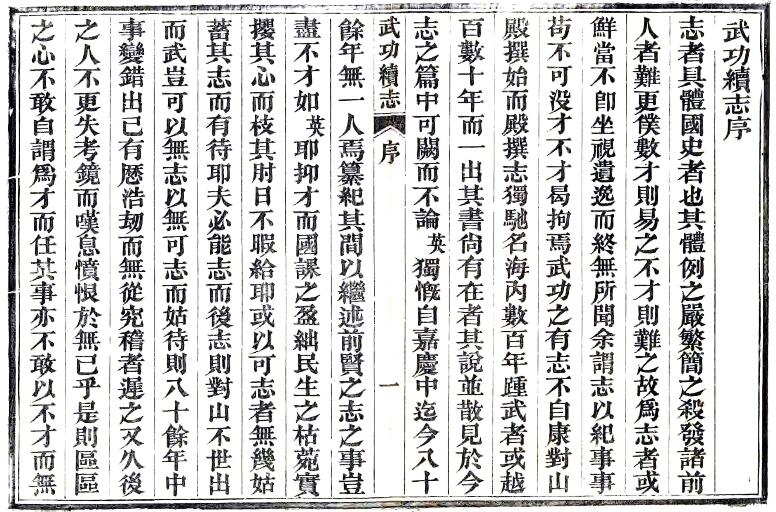 武功續志序
志者具體國史者也其體例之嚴繁簡之殺發諸前
人者難更僕數才則易之不才則難之故爲志者或
鮮當不卽坐視遺逸而終無所聞余謂志以紀事事
苟不可没才不才曷拘焉武功之有志不自康對山
殿撰始而殿撰志獨馳名海內數百年踵武者或越
百數十年而一出其書尙有在者其說並散見於今
志之篇中可闕而不論英獨慨自嘉慶中迄今八十
武功續志 序 一
餘年無一人焉纂紀其間以繼述前賢之志之事豈
盡不才如英耶抑才而國課之盈絀民生之枯菀實
攖其心而枝其肘日不暇給耶或以可志者無幾姑
蓄其志而有待耶夫必能志而後志則對山不世出
而武豈可以無志以無可志而姑待則八十餘年中
事變錯出已有歷浩劫而無從究稽者遲之又久後
之人不更失考鏡而嘆息憤恨於無已乎是則區區
之心不敢自謂爲才而任其事亦不敢以不才而無